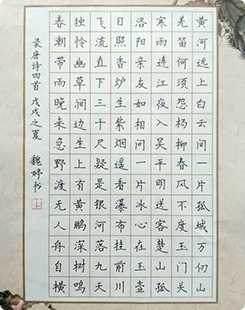 黄河远上白云间一片孤城万仞山
羌笛何须怨杨柳春风不度玉门关
寒雨连江夜入吴平明送客楚山孤
洛阳亲友如相问一片冰心在玉壶
日照香炉生紫烟遥看瀑布挂前川
飞流直下三千尺疑是银河落九天
独怜幽草涧边生上有黄鹂深树鸣
春潮带雨晚来急野渡无人舟自横
录唐诗四首 戊戌之夏 魏婷书